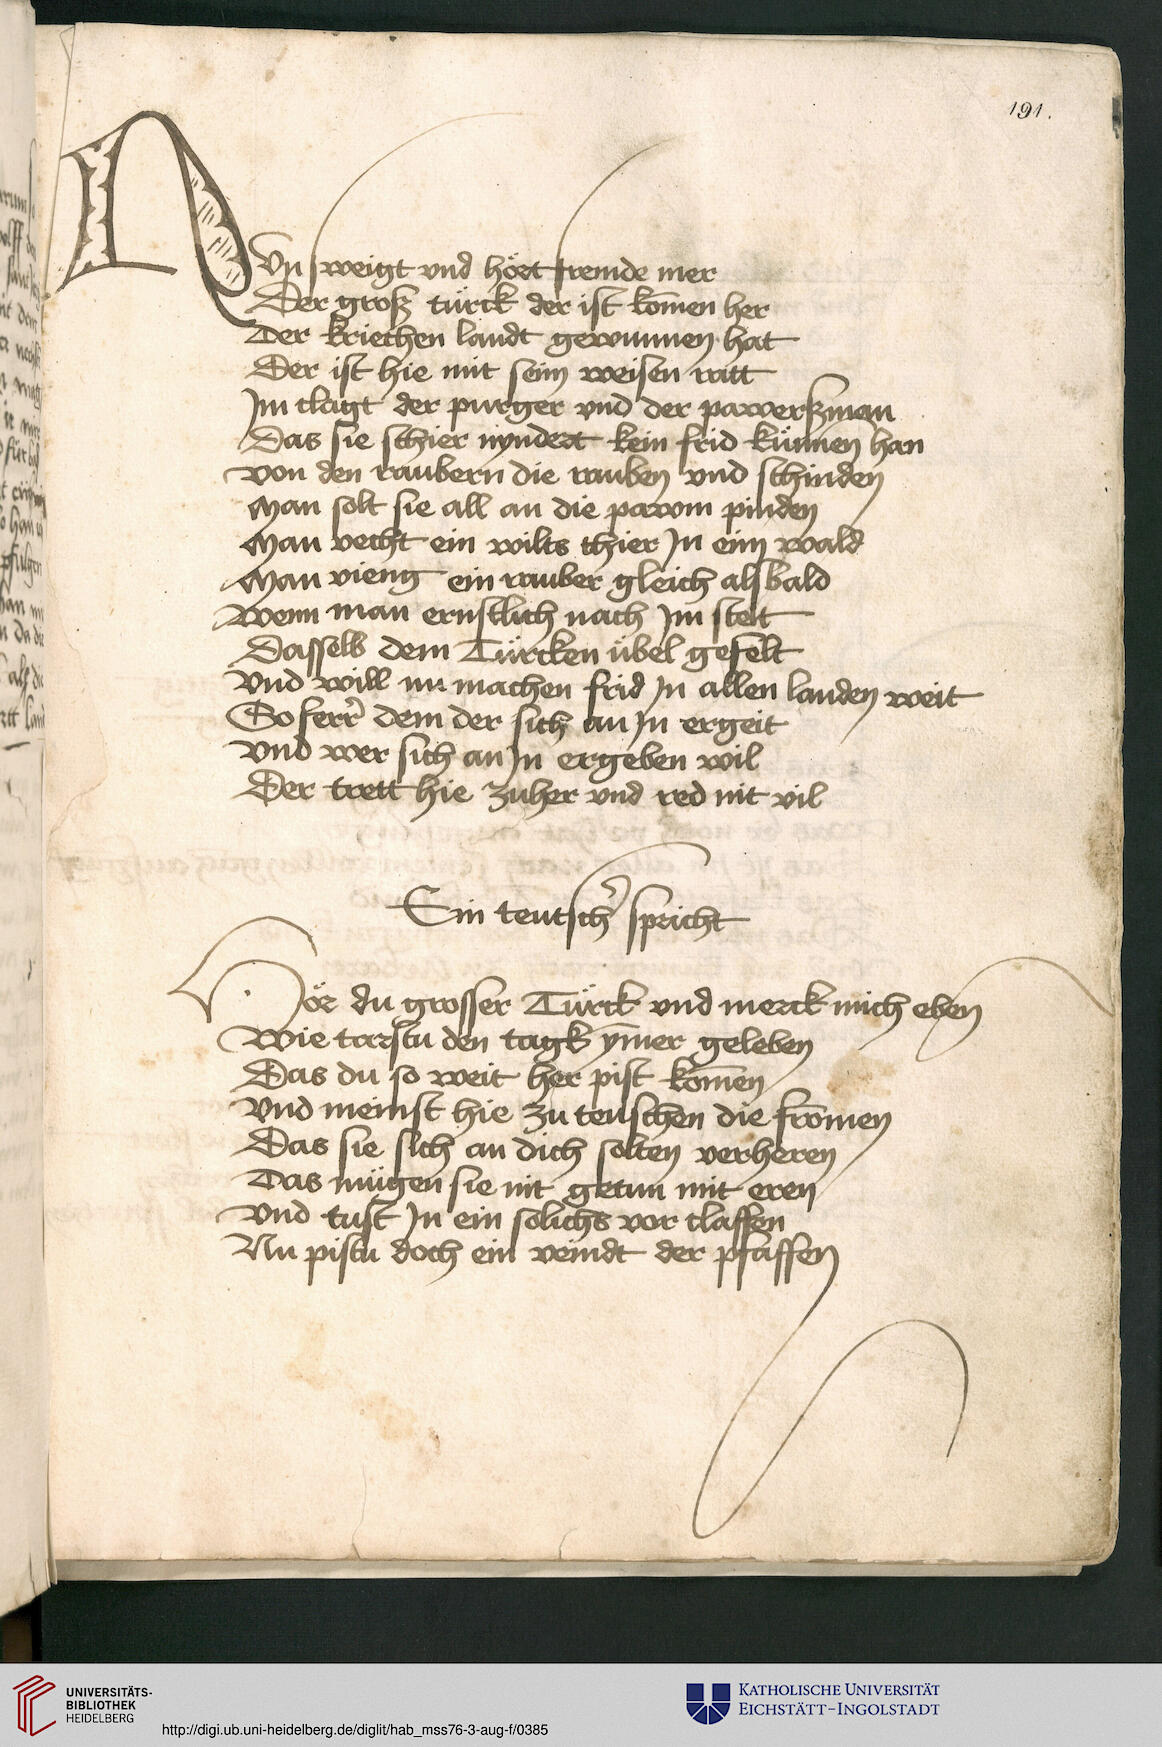 191.
NUn sweigt vnd höret fremde mer
Der groß türck der ist kom̄en her
Der kriechen landt gewunnen hat
Der ist hie mit seim weisen ratt
Jm clagt der purger vnd der pawerßman
Das sie schier nyndert kein frid künnen han
von den raubern die rauben vnd schinden
Man solt sie all an die pawm pinden
Man vecht ein wilts thier Jn eim wald
Man vieng ein rauber gleich alsbald
Wenn man ernstlich nach Jm stelt
Dasselb dem Türcken übel gefelt
Vnd will nu machen frid Jn allen landen weit
So ferr dem der sich an Jn ergeit
Vnd wer sich an Jn ergeben wil
Der trett hie zuher vnd red nit vil
Ein teutscher spricht
Hör du grosser Türck vnd merck mich eben
Wie tarstu den tagk ym̄er geleben
Das du so weit her pist kom̄en
Vnd meinst hie zu teuschen die from̄en
Das sie sich an dich solten verheren
Das mügen sie nit getun mit eren
Vnd tust Jn ein solichs vor claffen
Nu pistu doch ein veindt der pfaffen
UNIVERSITÄTS-
BIBLIOTHEK
HEIDELBERG
http://digi.ub.uni-heidelberg.de/diglit/hab_mss76-3-aug-f/0385
KATHOLISCHE UNIVERSITÄT
EICHSTÄTT-INGOLSTADT